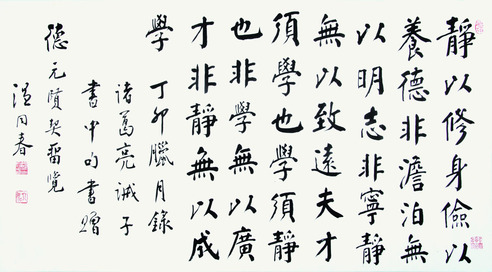 靜以修身儉以
養德非澹泊無
以明志非寧靜
無以致遠夫才
須學也學須靜
也非學無以廣
才非靜無以成
學 丁卯臘月錄
諸葛亮誡子
書中句書贈
德元賢契留覽
同春